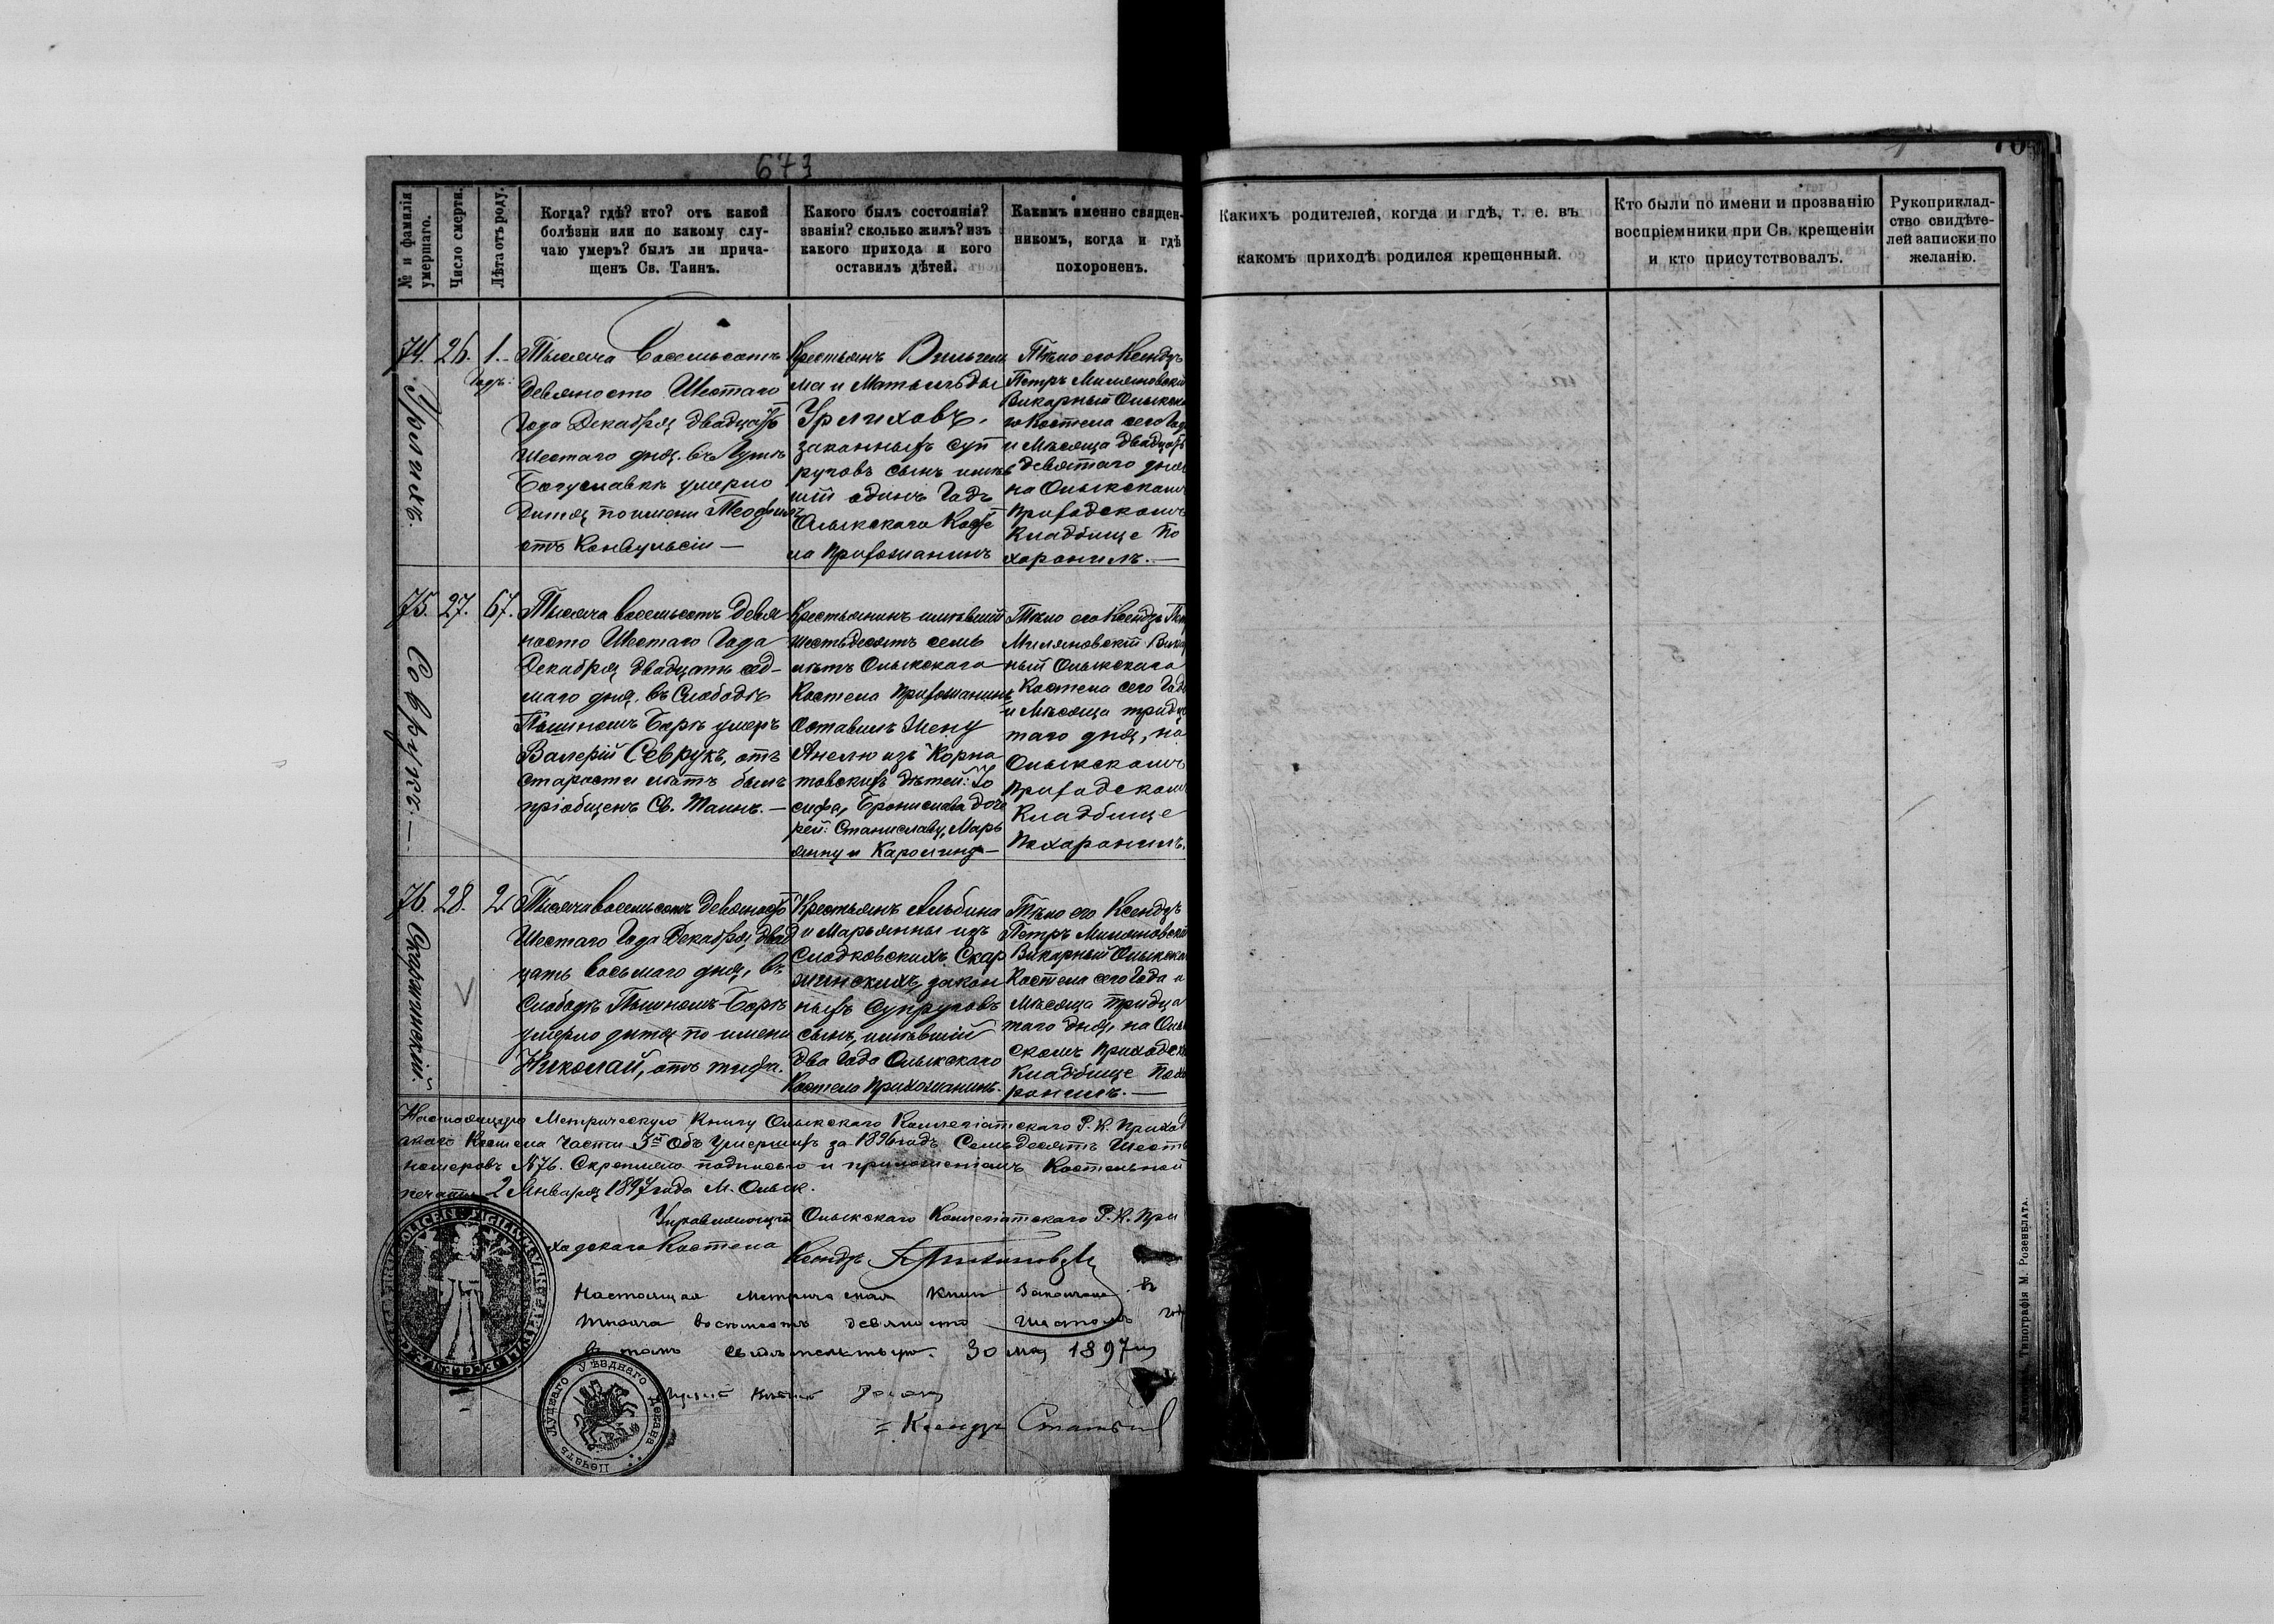 673
№ и фамилія умершаго.
Число смерти.
Лѣта отъ роду.
Когда? гдѣ? кто? отъ какой
болѣзни или по какому слу-
чаю умеръ? былъ ли прича-
щенъ Св. Таинъ.
Какого былъ состоянія?
званія? сколько жилъ? изъ
какого прихода и кого
оставилъ дѣтей.
Какимъ именно священ-
никомъ, когда и гдѣ
похороненъ.
74.
Урлихъ.
26.
1.
Годъ.
Тысяча восемьсотъ
девяносто Шестаго
Года Декабря двадцать
Шестаго дня. въ
Богуславкѣ умерло
дитя по имени Теофилъ
отъ Конвульсіи —
Крестьянъ Вильгель
ма и Матыльды
Урлиховъ.
законныхъ суп
руговъ сынъ имѣв
шій одинъ Годъ
Олыкского Косте
ла прихожанинъ
Тѣло его Ксендзъ
Петръ Миляновскій
Викарный Олыкска
го Костела сего Года
и Мѣсяца двадцать
девятаго дня
на Олыкскомъ
приходскомъ
Кладбище По
хоронилъ. —
75.
Севрукъ. —
27.
67.
Тысяча восемьсотъ девя
носто Шестаго Года
Декабря двадцать сед-
маго дня. въ Слободѣ
Пышномъ-Борѣ умеръ
Валерій Севрукъ, отъ
старости лѣтъ былъ
пріобщенъ Св. Таинъ. —
Крестьянинъ имѣвшій
шестьдесятъ семь
лѣтъ Олыкскаго
Костела прихожанинъ
Оставилъ Жену
Анелю изъ Корна
товскихъ дѣтей: Іо
сифа, Бронислава доче
рей: Станиславу, Марь
янну и Каролину —
Тѣло его Ксендзъ Петръ
Миляновскій Викар
ный Олыкскаго
Костела сего Года
и Мѣсяца тридца
таго дня, на
Олыкскомъ
приходскомъ
Кладбище
Похоронилъ.
76.
Скаржинскій.
28.
2
Тысяча восемьсотъ девяносто
Шестаго Года Декабря двад
цать восьмаго дня, въ
Слободѣ Пышномъ-Борѣ
умерло дитя по имени
Николай, отъ тифа.
Крестьянъ Альбина
и Марьянны изъ
Сладковскихъ Скар
жинскихъ закон
ныхъ Супруговъ
сынъ, имѣвшій
два Года Олыкскаго
Костела Прихожанинъ.
Тѣло его Ксендзъ
Петръ Миляновскій
Викарный Олыкска
Костела сего Года и
Мѣсяца тридца
таго дня, на Олык
скомъ приходск
Кладбище Похо
ронилъ. —
Настоящую Метрическую Книгу Олыкского Коллегіатскаго Р. К. Приход
скаго Костела Части 3й Объ Умершихъ за 1896 годъ Семьдесятъ Шесть
номеровъ №76. Скрепляю подписью и приложеніемъ Костельной
печати 2 Января 1897 года М. Олык.
Управляющій Олыкскаго Коллегіатскаго Р. К. При
ходскаго Костела
Ксендзъ
Настоящая метрическая книга Закончена въ
тысяча восемьсотъ девяносто шестомъ году
въ томъ свидѣтельствую. 30 мая 1897
Ксендзъ
Печать Луцкаго Уѣзднаго Декана
Какихъ родителей, когда и гдѣ, т. е. въ
какомъ приходѣ родился крещенный.
Кто были по имени и прозванію
воспріемники при Св. крещеніи
и кто присутствовалъ.
Рукоприклад-
ство свидѣте-
лей записки по
желанію.
Типографія М. Розенблата.